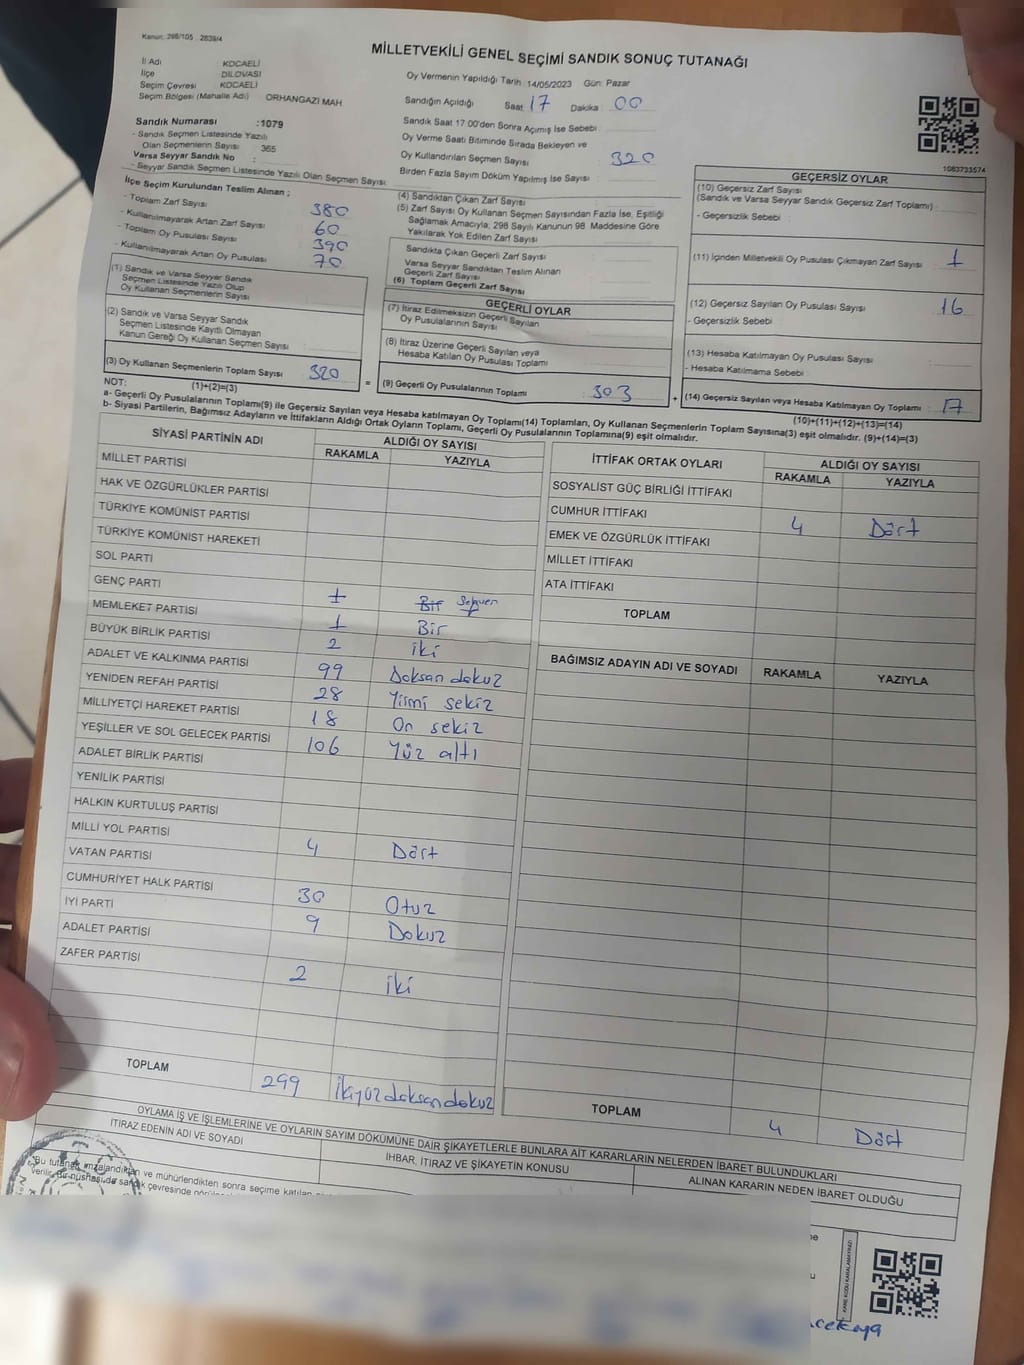 Kanun: 298/105 2839/4
MİLLETVEKİLİ GENEL SEÇİMİ SANDIK SONUÇ TUTANAĞI
İl Adı : KOCAELİ
İlçe : DİLOVASI
Seçim Çevresi : KOCAELİ
Seçim Bölgesi (Mahalle Adı) : ORHANGAZİ MAH.
Sandık Numarası :1079
- Sandık Seçmen Listesinde Yazılı
Olan Seçmenlerin Sayısı : 365
Varsa Seyyar Sandık No :
- Seyyar Sandık Seçmen Listesinde Yazılı Olan Seçmen Sayısı:
Oy Vermenin Yapıldığı Tarih :14/05/2023 Gün: Pazar
Sandığın Açıldığı Saat 17 Dakika : 00
Sandık Saat 17:00'den Sonra Açılmış İse Sebebi :
Oy Verme Saati Bitiminde Sırada Bekleyen ve
Oy Kullandırılan Seçmen Sayısı : 320
Birden Fazla Sayım Döküm Yapılmış İse Sayısı :
1083733574
İlçe Seçim Kurulundan Teslim Alınan ;
- Toplam Zarf Sayısı : 380
- Kullanılmayarak Artan Zarf Sayısı : 60
- Toplam Oy Pusulası Sayısı : 390
- Kullanılmayarak Artan Oy Pusulası : 70
(1) Sandık ve Varsa Seyyar Sandık
Seçmen Listesinde Yazılı Olup
Oy Kullanan Seçmenlerin Sayısı
(2) Sandık ve Varsa Seyyar Sandık
Seçmen Listesinde Kayıtlı Olmayan
Kanun Gereği Oy Kullanan Seçmen Sayısı :
(3) Oy Kullanan Seçmenlerin Toplam Sayısı : 320
(1)+(2)=(3)
(4) Sandıktan Çıkan Zarf Sayısı :
(5) Zarf Sayısı Oy Kullanan Seçmen Sayısından Fazla İse, Eşitliği
Sağlamak Amacıyla, 298 Sayılı Kanunun 98. Maddesine Göre
Yakılarak Yok Edilen Zarf Sayısı :
Sandıkta Çıkan Geçerli Zarf Sayısı :
Varsa Seyyar Sandıktan Teslim Alınan
Geçerli Zarf Sayısı :
(6) Toplam Geçerli Zarf Sayısı :
GEÇERLİ OYLAR
(7) İtiraz Edilmeksizin Geçerli Sayılan
Oy Pusulalarının Sayısı :
(8) İtiraz Üzerine Geçerli Sayılan veya
Hesaba Katılan Oy Pusulası Toplamı :
= (9) Geçerli Oy Pusulalarının Toplamı : 303
GEÇERSİZ OYLAR
(10) Geçersiz Zarf Sayısı
(Sandık ve Varsa Seyyar Sandık Geçersiz Zarf Toplamı) :
- Geçersizlik Sebebi :
(11) İçinden Milletvekili Oy Pusulası Çıkmayan Zarf Sayısı : 1
(12) Geçersiz Sayılan Oy Pusulası Sayısı : 16
- Geçersizlik Sebebi :
(13) Hesaba Katılmayan Oy Pusulası Sayısı :
- Hesaba Katılmama Sebebi :
+ (14) Geçersiz Sayılan veya Hesaba Katılmayan Oy Toplamı : 17
(10)+(11)+(12)+(13)=(14)
NOT:
a- Geçerli Oy Pusulalarının Toplamı(9) ile Geçersiz Sayılan veya Hesaba katılmayan Oy Toplamı(14) Toplamları, Oy Kullanan Seçmenlerin Toplam Sayısına(3) eşit olmalıdır. (9)+(14)=(3)
b- Siyasi Partilerin, Bağımsız Adayların ve İttifakların Aldığı Ortak Oyların Toplamı, Geçerli Oy Pusulalarının Toplamına(9) eşit olmalıdır.
SİYASİ PARTİNİN ADI ALDIĞI OY SAYISI
RAKAMLA YAZIYLA
MİLLET PARTİSİ
HAK VE ÖZGÜRLÜKLER PARTİSİ
TÜRKİYE KOMÜNİST PARTİSİ
TÜRKİYE KOMÜNİST HAREKETİ
SOL PARTİ
GENÇ PARTİ
MEMLEKET PARTİSİ 1 Bir
BÜYÜK BİRLİK PARTİSİ 2 iki
ADALET VE KALKINMA PARTİSİ 99 Doksan dokuz
YENİDEN REFAH PARTİSİ 28 Yirmi sekiz
MİLLİYETÇİ HAREKET PARTİSİ 18 On sekiz
YEŞİLLER VE SOL GELECEK PARTİSİ 106 Yüz altı
ADALET BİRLİK PARTİSİ
YENİLİK PARTİSİ
HALKIN KURTULUŞ PARTİSİ
MİLLİ YOL PARTİSİ
VATAN PARTİSİ 4 Dört
CUMHURİYET HALK PARTİSİ 30 Otuz
İYİ PARTİ 9 Dokuz
ADALET PARTİSİ
ZAFER PARTİSİ 2 iki
TOPLAM 299 İkiyüzdoksandokuz
İTTİFAK ORTAK OYLARI ALDIĞI OY SAYISI
RAKAMLA YAZIYLA
SOSYALİST GÜÇ BİRLİĞİ İTTİFAKI
CUMHUR İTTİFAKI 4 Dört
EMEK VE ÖZGÜRLÜK İTTİFAKI
MİLLET İTTİFAKI
ATA İTTİFAKI
TOPLAM
BAĞIMSIZ ADAYIN ADI VE SOYADI RAKAMLA YAZIYLA
TOPLAM 4 Dört
OYLAMA İŞ VE İŞLEMLERİNE VE OYLARIN SAYIM DÖKÜMÜNE DAİR ŞİKAYETLERLE BUNLARA AİT KARARLARIN NELERDEN İBARET BULUNDUKLARI
İTİRAZ EDENİN ADI VE SOYADI İHBAR, İTİRAZ VE ŞİKAYETİN KONUSU ALINAN KARARIN NEDEN İBARET OLDUĞU
Bu tutanak imzalandıktan ve mühürlendikten sonra seçime katılan